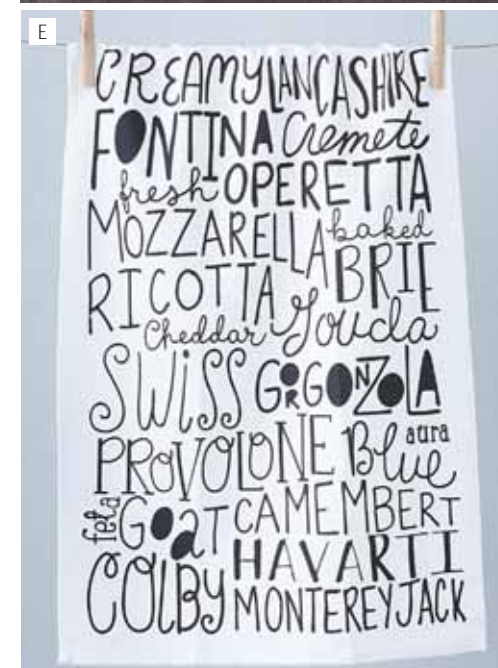 E
CREAMY LANCASHIRE
FONTINA Cremete
fresh OPERETTA
MOZZARELLA baked
RICOTTA BRIE
Cheddar Gouda
SWiSS GORGONZOLA
PROVOLONE Blue aura
feta GOAT CAMEMBERT
HAVARTI
COLBY MONTEREY JACK